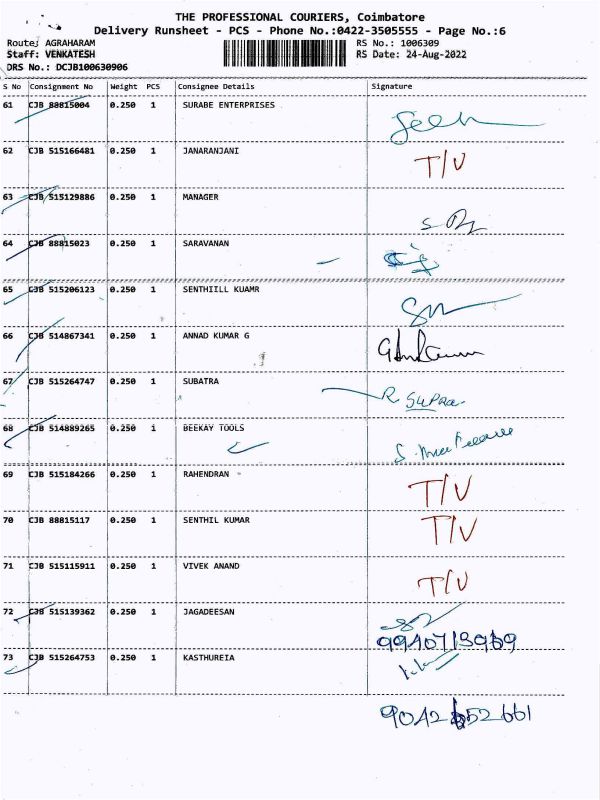 THE PROFESSIONAL COURIERS, Coimbatore
Delivery Runsheet - PCS - Phone No.:0422-3505555 - Page No.:6
Route: AGRAHARAM
RS No.: 1006309
Staff: VENKATESH
RS Date: 24-Aug-2022
DRS No.: DCJB100630906
S No Consignment No Weight PCS Consignee Details Signature
61 CJB 88815004 0.250 1 SURABE ENTERPRISES
62 CJB 515166481 0.250 1 JANARANJANI T/V
63 CJB 515129886 0.250 1 MANAGER
64 CJB 88815023 0.250 1 SARAVANAN
65 CJB 515206123 0.250 1 SENTHIILL KUAMR
66 CJB 514867341 0.250 1 ANNAD KUMAR G
67 CJB 515264747 0.250 1 SUBATRA R
68 CJB 514889265 0.250 1 BEEKAY TOOLS
69 CJB 515184266 0.250 1 RAHENDRAN T/V
70 CJB 88815117 0.250 1 SENTHIL KUMAR T/V
71 CJB 515115911 0.250 1 VIVEK ANAND T/V
72 CJB 515139362 0.250 1 JAGADEESAN
73 CJB 515264753 0.250 1 KASTHUREIA